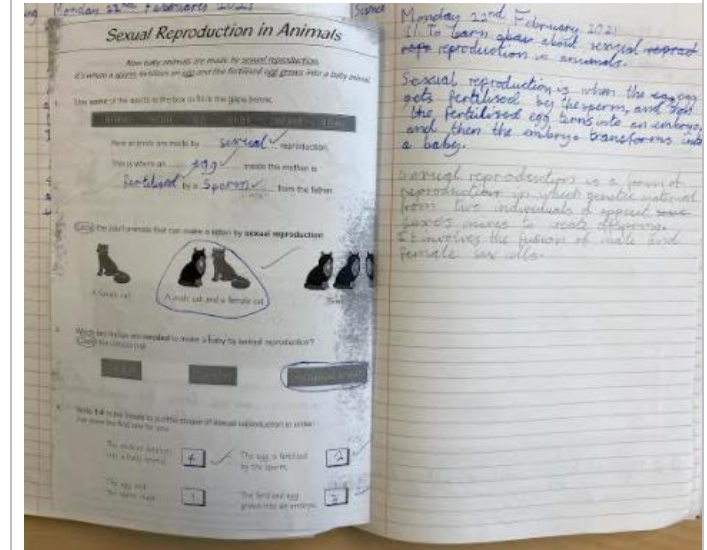 Monday 22nd February 2021
Sexual Reproduction in Animals
New baby animals are made by sexual reproduction.
It's where a sperm fertilises an egg and the fertilised egg grows into a baby animal.
1. Use some of the words in the box to fill in the gaps below.
New animals are made by sexual reproduction.
This is where an egg inside the mother is
fertilised by a sperm from the father.
Circle the adult animals that can make a kitten by sexual reproduction.
A female cat
A male cat and a female cat
3. Which two things are needed to make a baby by sexual reproduction?
Circle the correct
4. Write 1-4 in the boxes to put the stages of sexual reproduction in order.
the first one for you.
The embryo develops
into a baby animal
4
The egg is fertilised
by the sperm.
2
The egg and
the sperm meet
1
The fertilised egg
grows into an embryo.
3
Monday 22nd February 2021
LI To learn about sexual
reproduction in animals.
Sexual reproduction is when the egg
gets fertilised by the sperm, and
the fertilised egg turns into an embryo,
and then the embryo transforms into
a baby.
Sexual reproduction is a form of
reproduction in which genetic material
from two individuals of
mixes to create offspring.
It involves the fusion of male and
female sex cells.